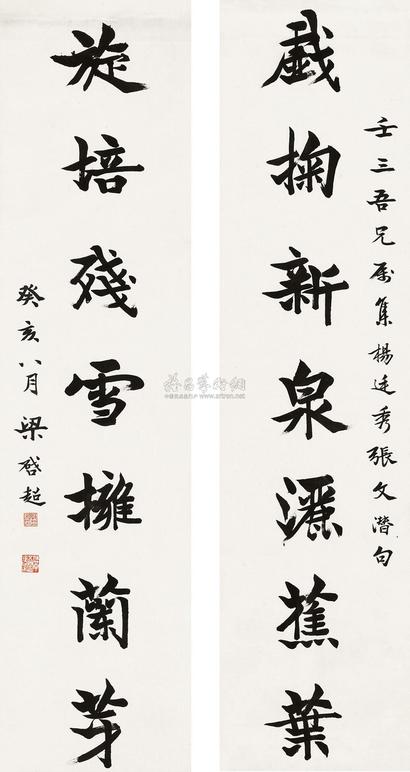 壬三吾兄属集楊廷秀張文潛句
戲掬新泉灑蕉葉
旋培殘雪擁蘭芽
癸亥八月梁啓超
www.artron.net